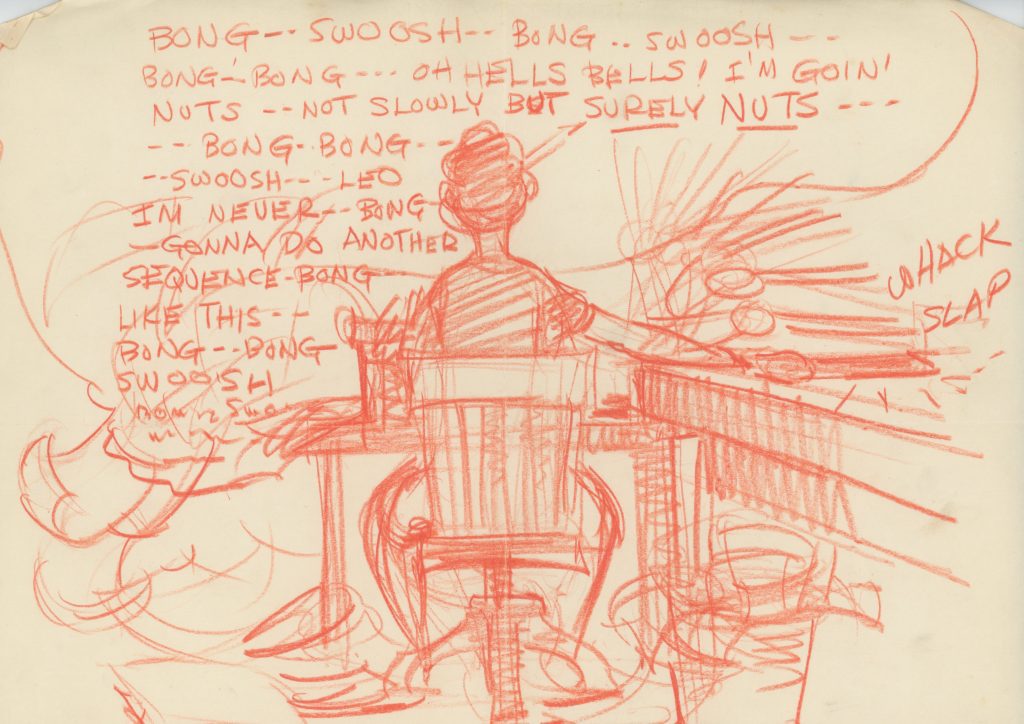 BONG-- SWOOSH-- BONG .. SWOOSH ---
BONG-BONG --- OH HELLS BELLS! I'M GOIN'
NUTS -- NOT SLOWLY BUT SURELY NUTS ---
-- BONG-BONG --
--SWOOSH--- LEO
I'M NEVER--BONG
-GONNA DO ANOTHER
SEQUENCE-BONG
LIKE THIS--
BONG---BONG
SWOOSH
WHACK
SLAP